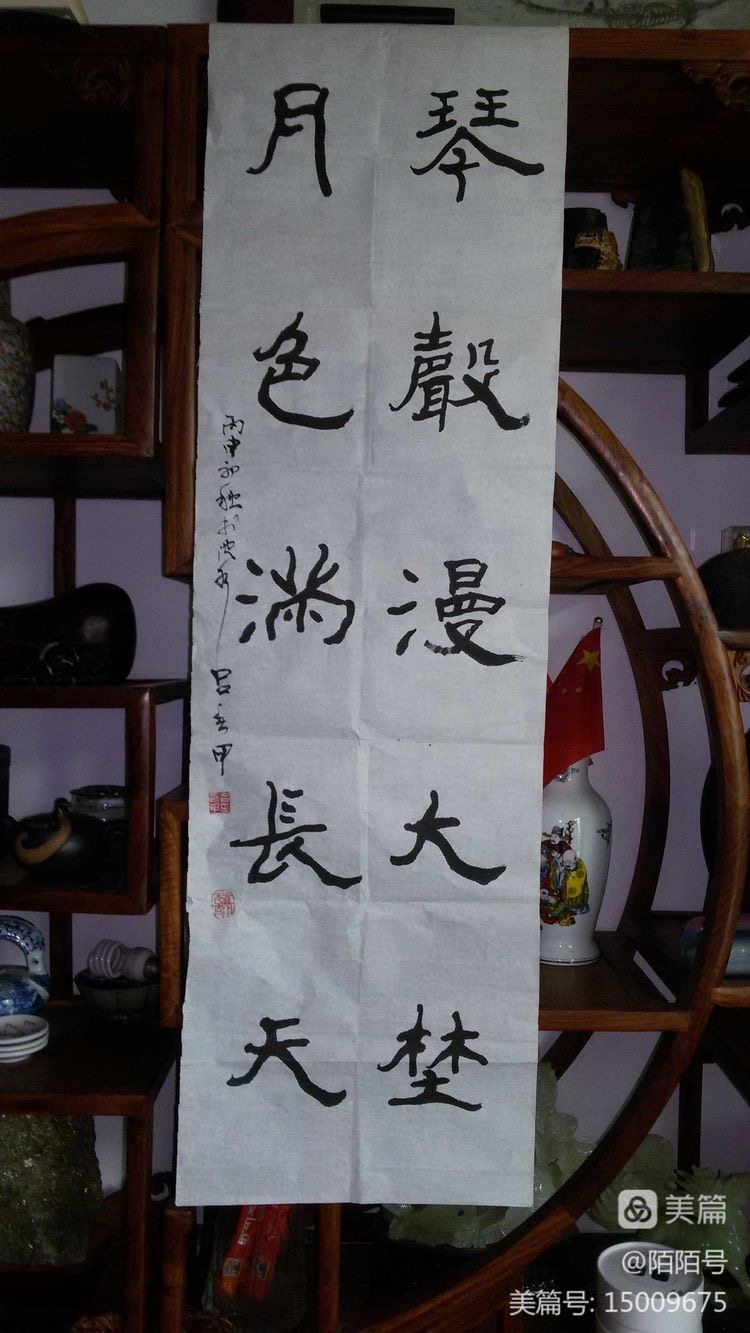 琴聲漫大埜
月色滿長天
丙申初秋於沈水
美篇
@陌陌号
美篇号: 15009675